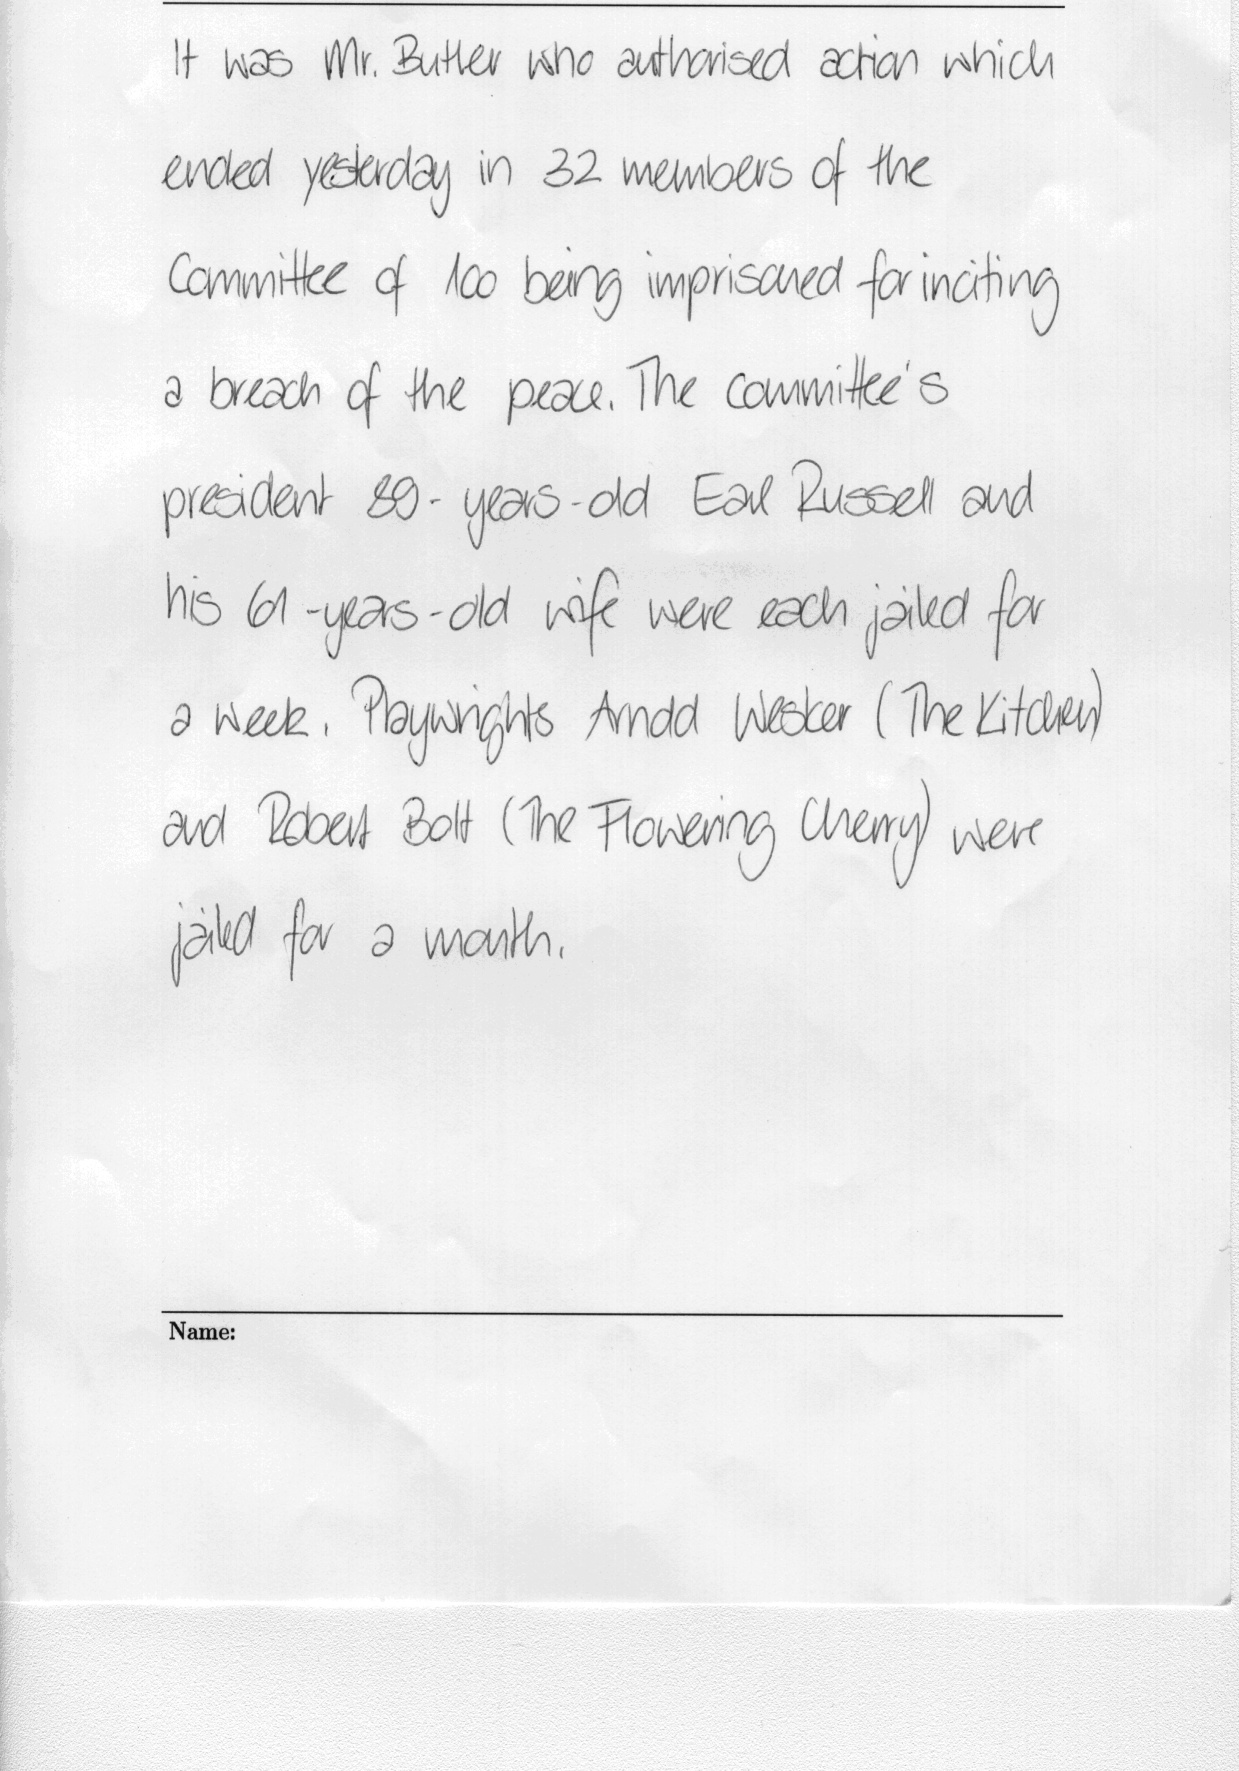 It was Mr. Butler who authorised action which
ended yesterday in 32 members of the
Committee of 100 being imprisoned for inciting
a breach of the peace. The committee's
president 89-years-old Earl Russell and
his 61-years-old wife were each jailed for
a week. Playwrights Arnold Wesker (The Kitchen)
and Robert Bolt (The Flowering Cherry) were
jailed for a month.
Name: